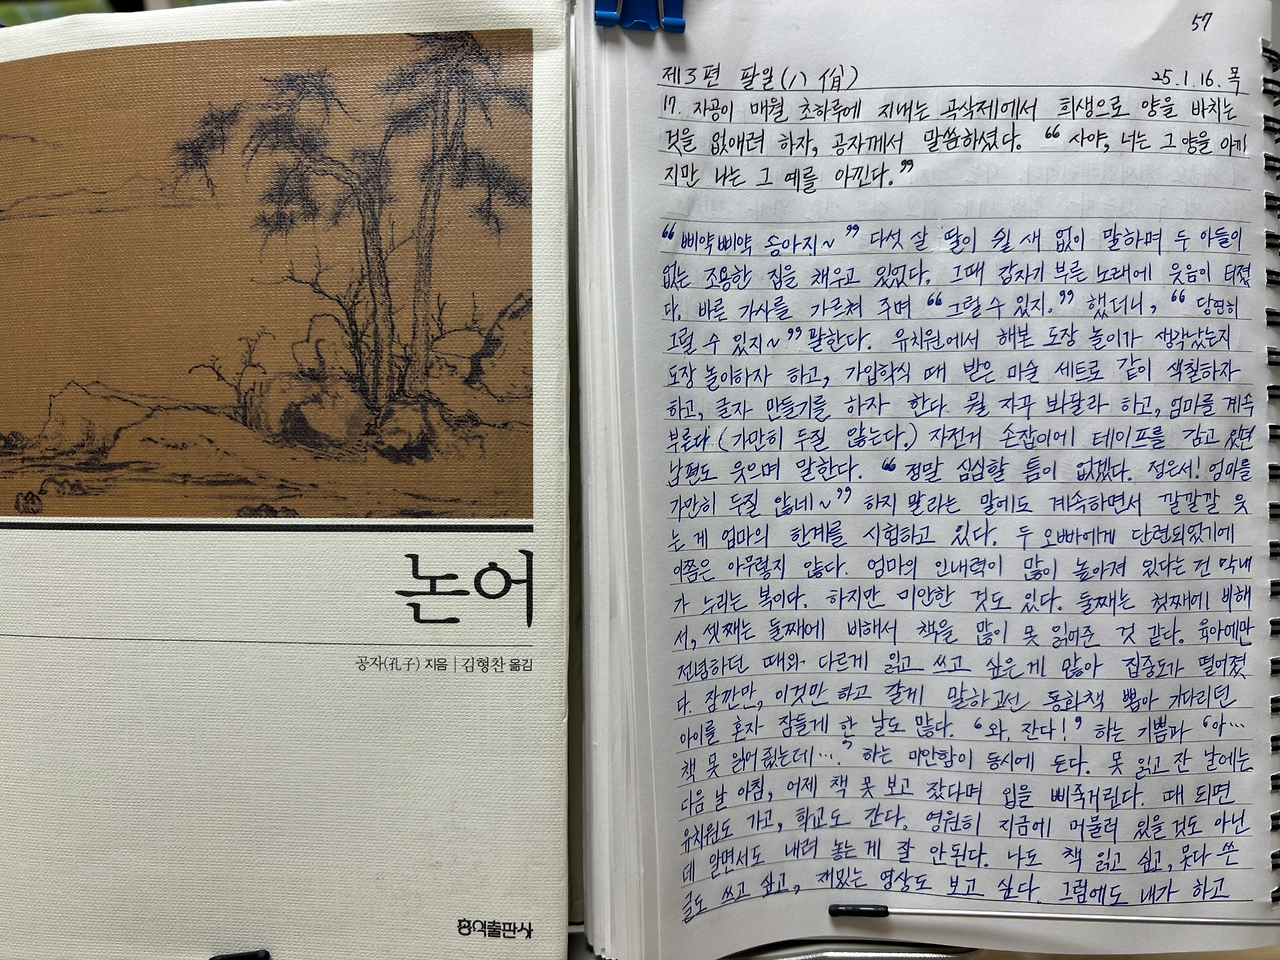 논어
공자(孔子) 지음 | 김형찬 옮김
홍익출판사
57
제3편 팔일(八佾) 25.1.16.목
17. 자공이 매월 초하루에 지내는 곡삭제에서 희생으로 양을 바치는
것을 없애려 하자, 공자께서 말씀하셨다. “사야, 너는 그 양을 아끼
지만 나는 그 예를 아낀다.”
“삐약삐약 송아지~” 다섯 살 딸이 쉴 새 없이 말하며 두 아들이
없는 조용한 집을 채우고 있었다. 그때 갑자기 부른 노래에 웃음이 터졌
다. 바른 가사를 가르쳐 주며 “그럴 수 있지.” 했더니, “당연히
그럴 수 있지~” 말한다. 유치원에서 해본 도장 놀이가 생각났는지
도장 놀이하자 하고, 가입학식 때 받은 미술 세트로 같이 색칠하자
하고, 글자 만들기를 하자 한다. 뭘 자꾸 봐달라 하고, 엄마를 계속
부른다 (가만히 두질 않는다.) 자전거 손잡이에 테이프를 감고 있던
남편도 웃으며 말한다. “정말 심심할 틈이 없겠다. 정은서! 엄마를
가만히 두질 않네~” 하지 말라는 말에도 계속하면서 깔깔깔 웃
는 게 엄마의 한계를 시험하고 있다. 두 오빠에게 단련되었기에
이쯤은 아무렇지 않다. 엄마의 인내력이 많이 높아져 있다는 건 막내
가 누리는 복이다. 하지만 미안한 것도 있다. 둘째는 첫째에 비해
서, 셋째는 둘째에 비해서 책을 많이 못 읽어준 것 같다. 육아에만
전념하던 때와 다르게 읽고 쓰고 싶은 게 많아 집중도가 떨어졌
다. 잠깐만, 이것만 하고 갈게 말하고선 동화책 뽑아 기다리던
아이를 혼자 잠들게 한 날도 많다. ‘와, 잔다!’ 하는 기쁨과 ‘아…
책 못 읽어 줬는데….’ 하는 미안함이 동시에 든다. 못 읽고 잔 날에는
다음 날 아침, 어제 책 못 보고 잤다며 입을 삐죽거린다. 때 되면
유치원도 가고, 학교도 간다. 영원히 지금에 머물러 있을 것도 아닌
데 알면서도 내려 놓는 게 잘 안된다. 나도 책 읽고 싶고, 못다 쓴
글도 쓰고 싶고, 재밌는 영상도 보고 싶다. 그럼에도 내가 하고